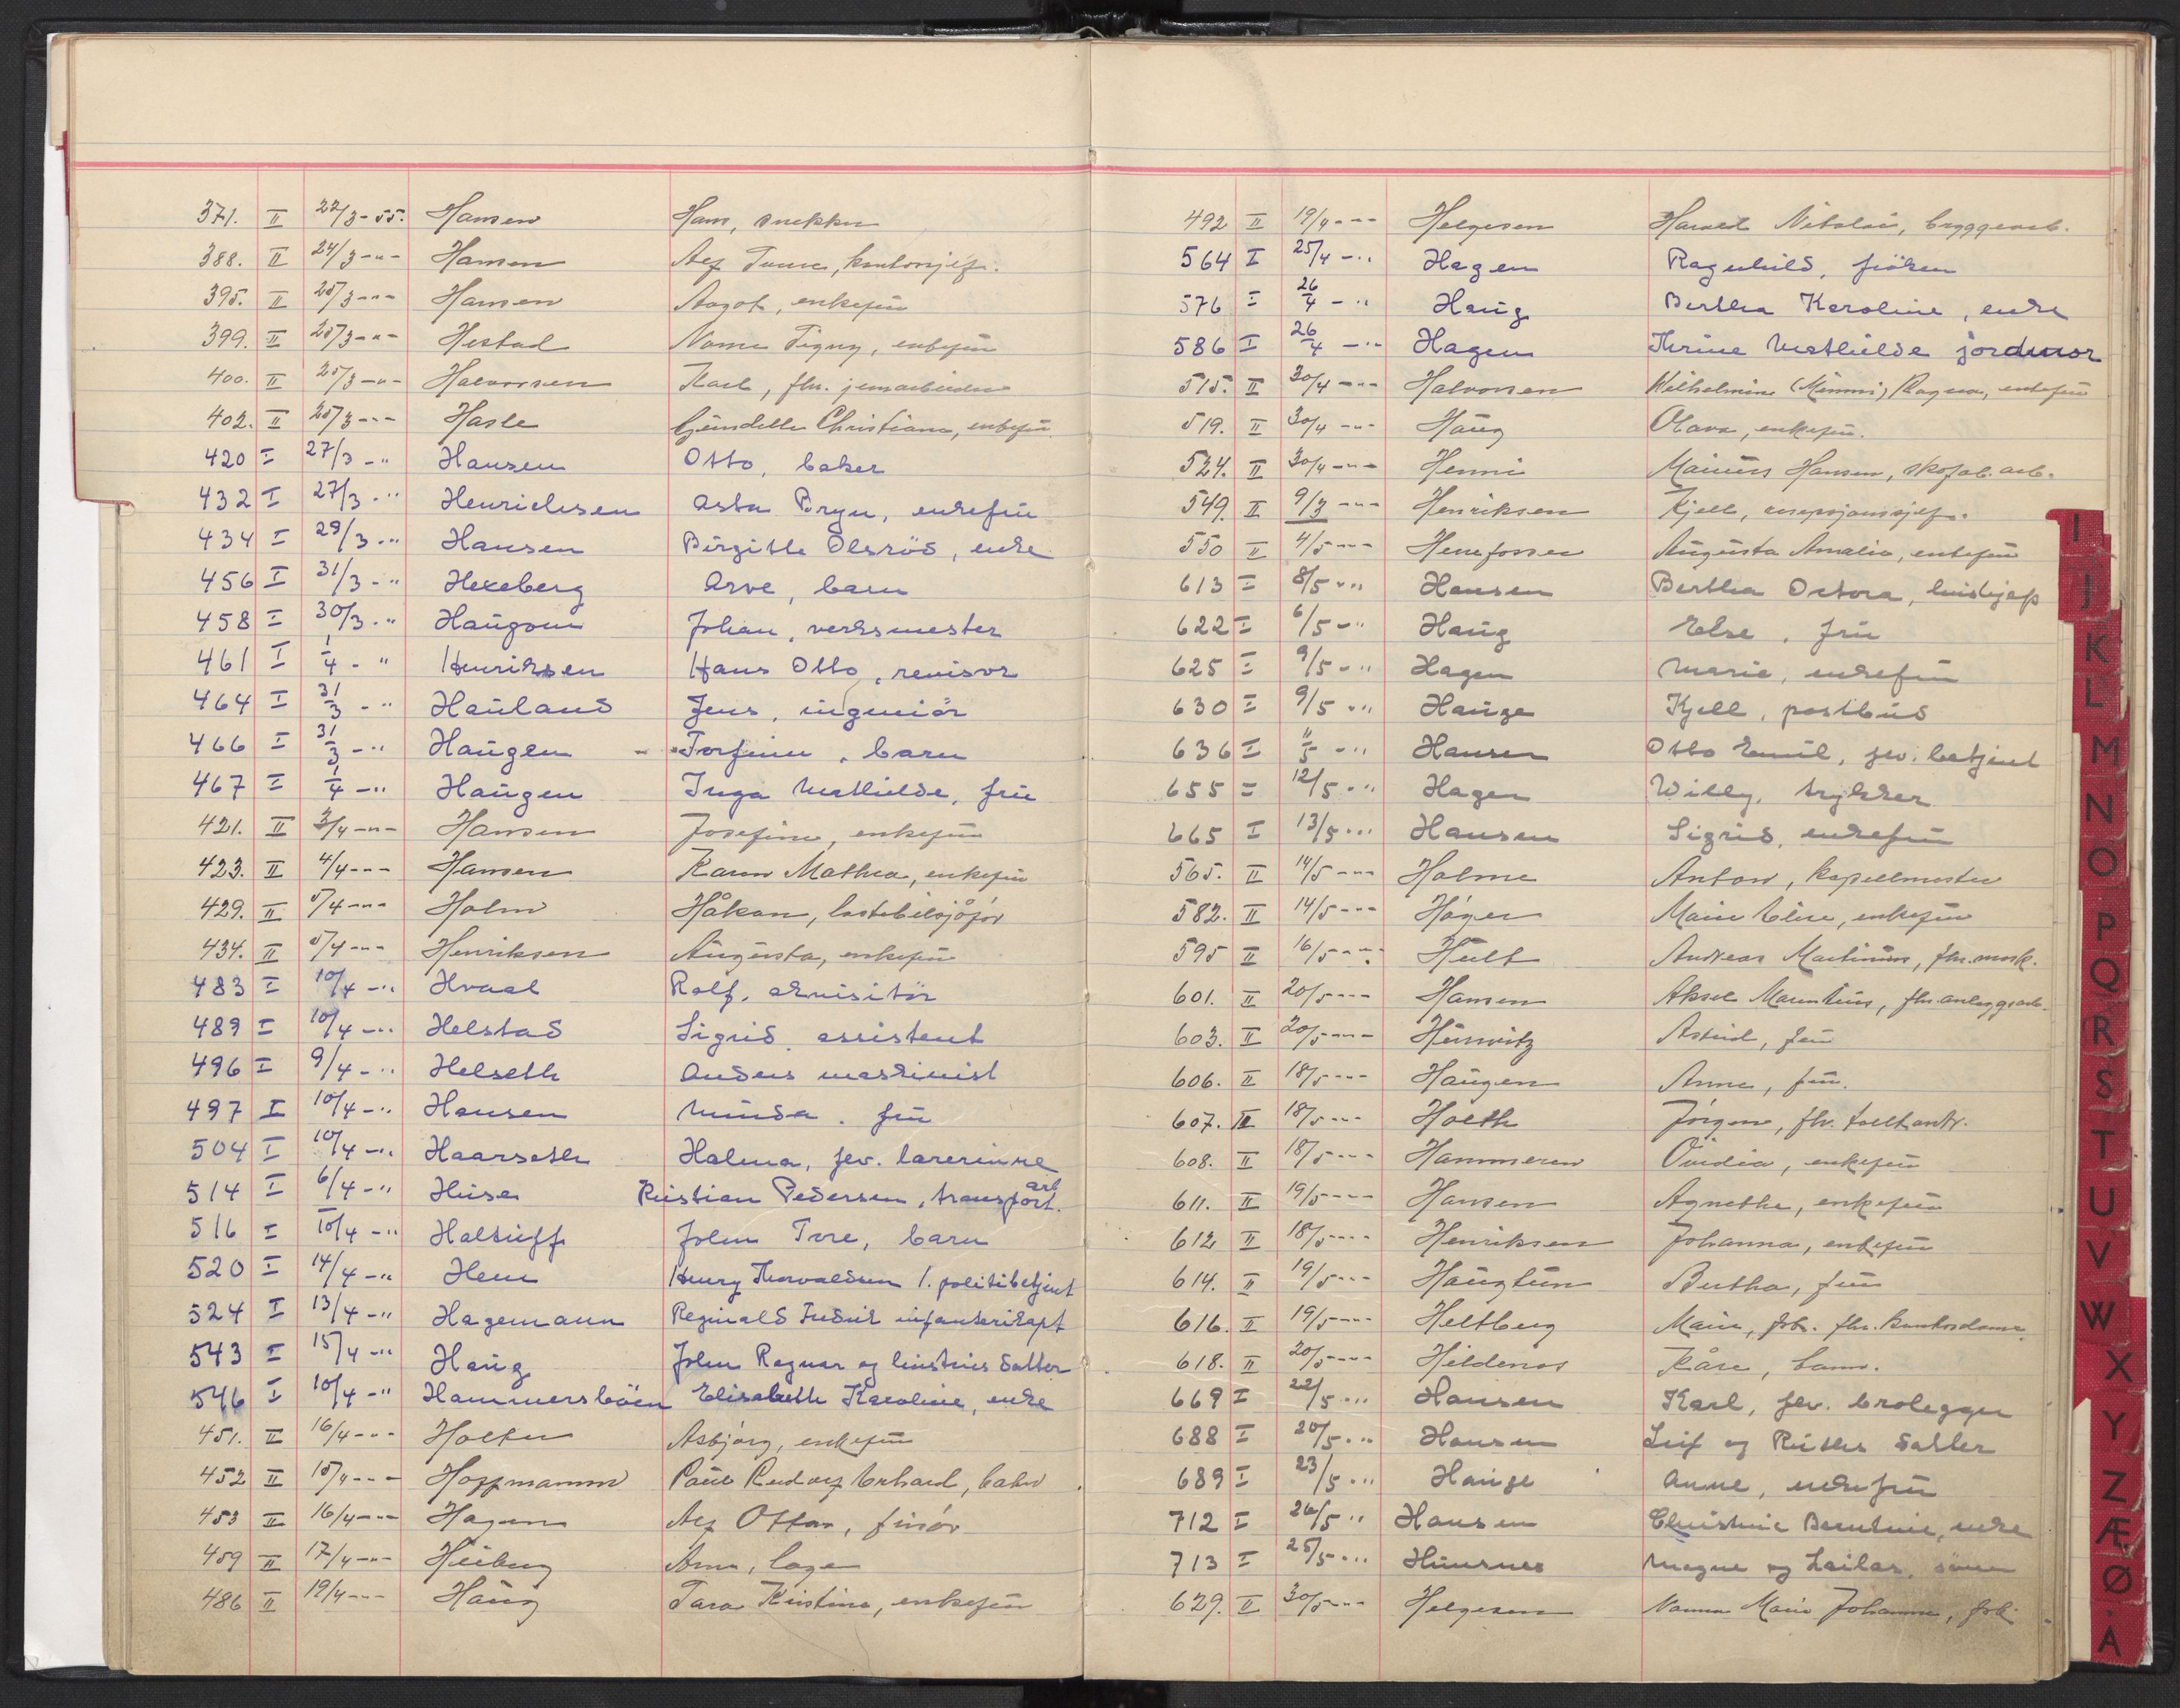 371. II 22/3-55. Hansen Hans, snekker
388. II 24/3-"- Hansen Alf Tunne, kontorsjef.
395. II 25/3-"- Hansen Aagot, enkefrü
399. II 25/3-"- Hestad Signy, enkefrü
400. II 25/3-"- Halvorsen Karl, fhv. jernarbeider
402. II 25/3-"- Hasle Christiane, enkefrü
420 I 27/3-" Hansen Otto, baker
432 I 27/3-" Henrichsen Asta Bryn, enkefrü
434 I 29/3-" Hansen Birgitte Olsröd, enke
456 I 31/3-" Hexeberg Arve, barn
458 I 30/3-" Haügom Johan, verksmester
461 I 1/4-" Henriksen Hans Otto, revisor
464 I 31/3-" Haüland Jens, ingeniör
466 I 31/3-" Haügen Torfinn, barn
467 I 1/4-" Haügen Inga Mathilde, frü
421. II 3/4-"- Hansen Josefine, enkefrü
423. II 4/4-"- Hansen Karen Mathea, enkefrü
429. II 5/4-"- Holm Håkon, lastebilsjåfør
434. II 5/4-"- Henriksen Aügüsta, enkefrü
483 I 10/4-" Hvaal Rolf, akvisitör
489 I 10/4-" Helstad Sigrid, assistent
496 I 9/4-" Helseth Anders maskinist
497 I 10/4-" Hansen frü
504 I 10/4-" Haarseth Halma, fev. lærerinne
514 I 6/4-" Hüse Kristian Pedersen, transport. arb
516 I 10/4-" John Tore, barn
520 I 14/4-" Hem Henry Thorvaldsen 1. politibetjent
524 I 13/4-" Hagemann Reginald Fredrik infanterikapt
543 I 15/4-" Haüg John Ragnar og hüstrüs datter
546 I 10/4-" Hammersböen Elisabeth Karoline, enke
451. II 16/4-"- Holter Asbjørg, enkefrü
452 II 15/4-"- Hoffmann Paül Rudolf Erhard,
453 II 16/4-"- Hagen Alf Ottar, frisør
459 II 17/4-"- Heiberg Arne, lege
486 II 19/4-"- Haüg Tara Kristine, enkefrü
492 II 19/4-"- Helgesen Harald Nikolai, bryggearb.
564 I 25/4-" Hagen Ragnhild, fröken
576 I 26/4-" Haüg Bertha Karoline, enke
586 I 26/4-" Hagen Thrine Mathilde jordmor
515. II 30/4-"- Halvorsen Wilhelmine (Mimmi) Ragna, enkefrü
519. II 30/4-"- Haüg Olava, enkefrü.
524. II 30/4-"- Henni Hansen, skofab. arb.
549. II 9/3-"- Henriksen Kjell, resepsjonssjef.
550 II 4/5-"- Aügüsta Amalie, enkefrü
613 I 8/5-" Hansen Bertha Octora, hüshjelp
622 I 6/5-" Haüg Else, frü
625 I 9/5-" Hagen Marie, enkefrü
630 I 9/5-" Haüge Kjell, postbüd
636 I 11/5-" Hansen Otto Emil, fev. betjent
655 I 12/5-" Hagen Willy, trykker
665 I 13/5-" Hansen Sigrid, enkefrü
565. II 14/5-"- Holme Anton, kapellmester
582. II 14/5-"- Høyer Marie Elise, enkefrü
595 II 16/5-"- Hült Andreas Martinius, fhv. mask.
601. II 20/5-"- Hansen Aksel fhv. anleggsarb.
603. II 20/5-"- Hürwitz Astrid, frü
606. II 18/5-"- Haügen Anne, frü.
607. II 18/5-"- Holth Jørgen, fhv.
608. II 18/5-"- Hammeren enkefrü
611. II 19/5-"- Hansen Agnethe, enkefrü
612 II 18/5-"- Henriksen Johanna, enkefrü
614. II 19/5-"- Haügtün Bertha, frü
616. II 19/5-"- Heltberg Marie, frk. fhv. kontordame
618. II 20/5-"- Hildenes Kåre, barn.
669 I 22/5-" Hansen Karl, fev. brolegger
688 I 20/5-" Hansen Leif og Rüths datter
689 I 23/5-" Haüge Anne, enkefrü
712 I 26/5-" Hansen Christine Berntine, enke
713 I 25/5-" Hünsnes Magne og Lailas, sönn
629. II 30/5-"- Helgesen Nanna Marie Johanne, frk.
I
J
K
L
M
N
O
P
Q
R
S
T
U
V
W
X
Y
Z
Æ
Ø
Å